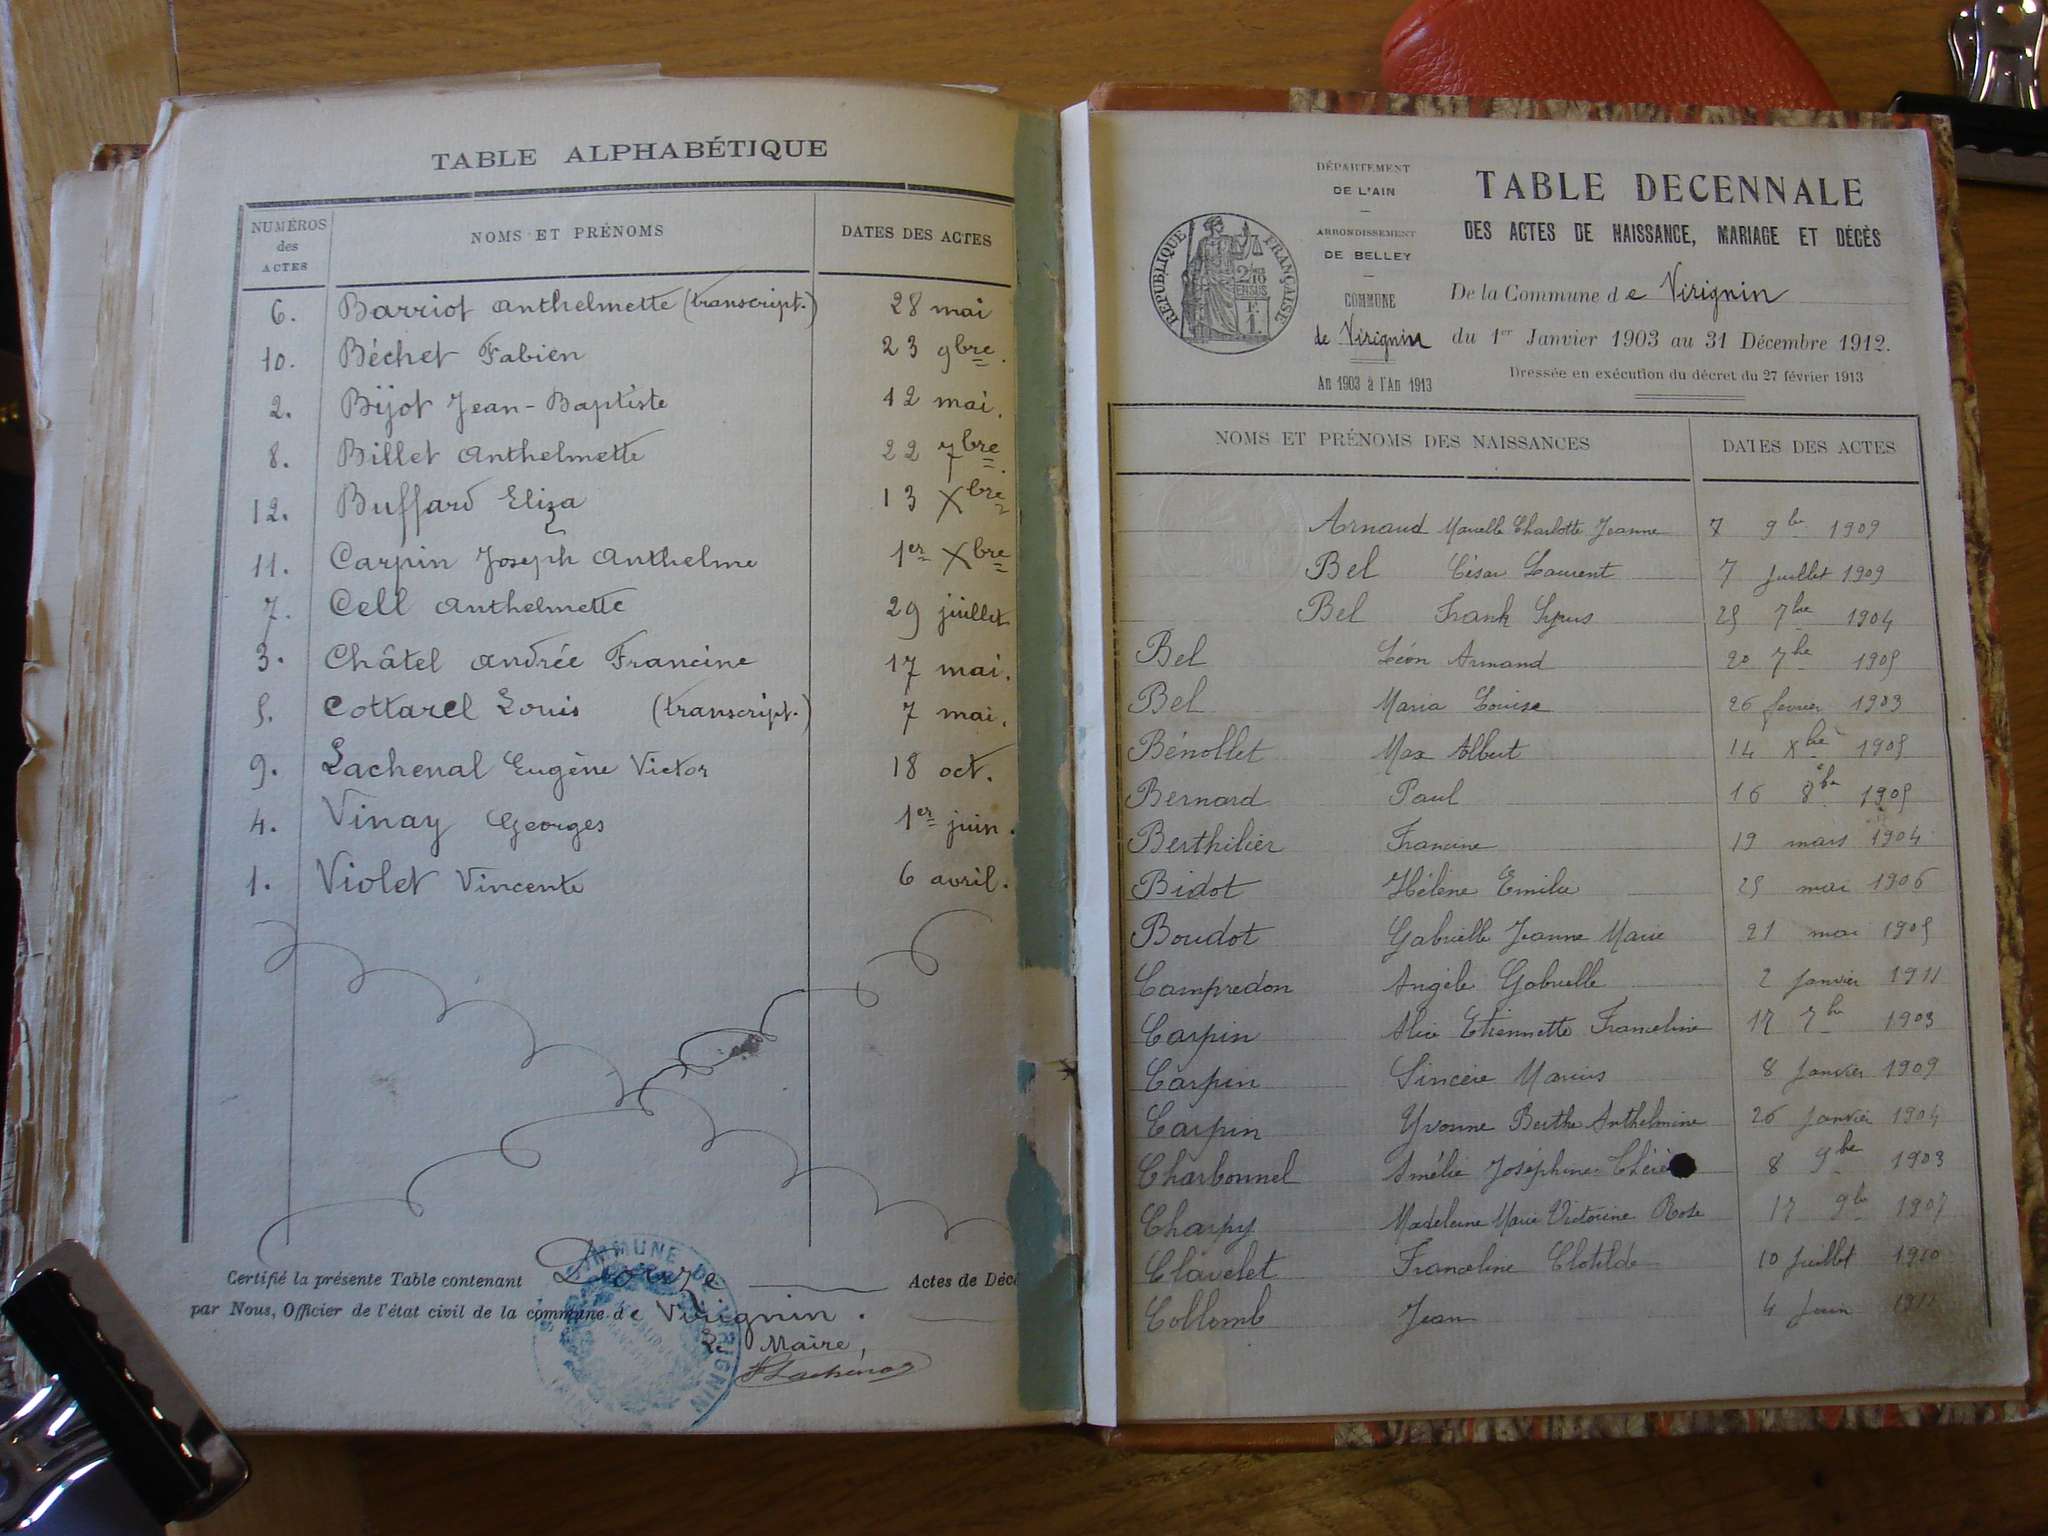 TABLE ALPHABÉTIQUE
NUMÉROS des ACTES NOMS ET PRÉNOMS DATES DES ACTES
6. Barriot Anthelmette (transcript.) 28 mai
10. Béchet Fabien 23 9bre.
2. Bijot Jean-Baptiste 12 mai.
8. Billet Anthelmette 22 7bre.
12. Buffard Eliza 13 Xbre
11. Carpin Joseph Anthelme 1er Xbre
7. Cell Anthelmette 29 juillet
3. Châtel Andrée Francine 17 mai.
5. Cottarel Louis (transcript.) 7 mai.
9. Lachenal Eugène Victor 18 oct.
4. Vinay Georges 1er juin.
1. Violet Vincente 6 avril.
Certifié la présente Table contenant Douze Actes de Déc
par Nous, Officier de l'état civil de la commune de Virignin.
Le Maire,
Lachenal
COMMUNE DE VIRIGNIN
RÉPUBLIQUE FRANÇAISE
DÉPARTEMENT
DE L'AIN
ARRONDISSEMENT
DE BELLEY
COMMUNE
de Virignin
An 1903 à l'An 1913
TABLE DECENNALE
DES ACTES DE NAISSANCE, MARIAGE ET DÉCÈS
De la Commune de Virignin
du 1er Janvier 1903 au 31 Décembre 1912.
Dressée en exécution du décret du 27 février 1913
NOMS ET PRÉNOMS DES NAISSANCES DATES DES ACTES
Arnaud Marcelle Charlotte Jeanne 7 9bre 1909
Bel César Laurent 7 Juillet 1909
Bel Frank Cyrus 25 7bre 1904
Bel Léon Armand 20 7bre 1905
Bel Maria Louise 26 février 1903
Bénollet Max Albert 14 Xbre 1905
Bernard Paul 16 8bre 1905
Berthilier Francine 19 mars 1904
Bidot Hélène Emilie 25 mai 1906
Boudot Gabrielle Jeanne Marie 21 mai 1905
Campredon Angèle Gabrielle 2 Janvier 1911
Carpin Alice Etiennette Franceline 17 7bre 1903
Carpin Sincère Marius 8 Janvier 1909
Carpin Yvonne Berthe Anthelmine 26 Janvier 1904
Charbonnel Amélie Joséphine 8 9bre 1903
Charpy Madeleine Marie Victorine Rose 17 9bre 1907
Clavelet Franceline Clotilde 10 Juillet 1910
Collomb Jean 4 Juin